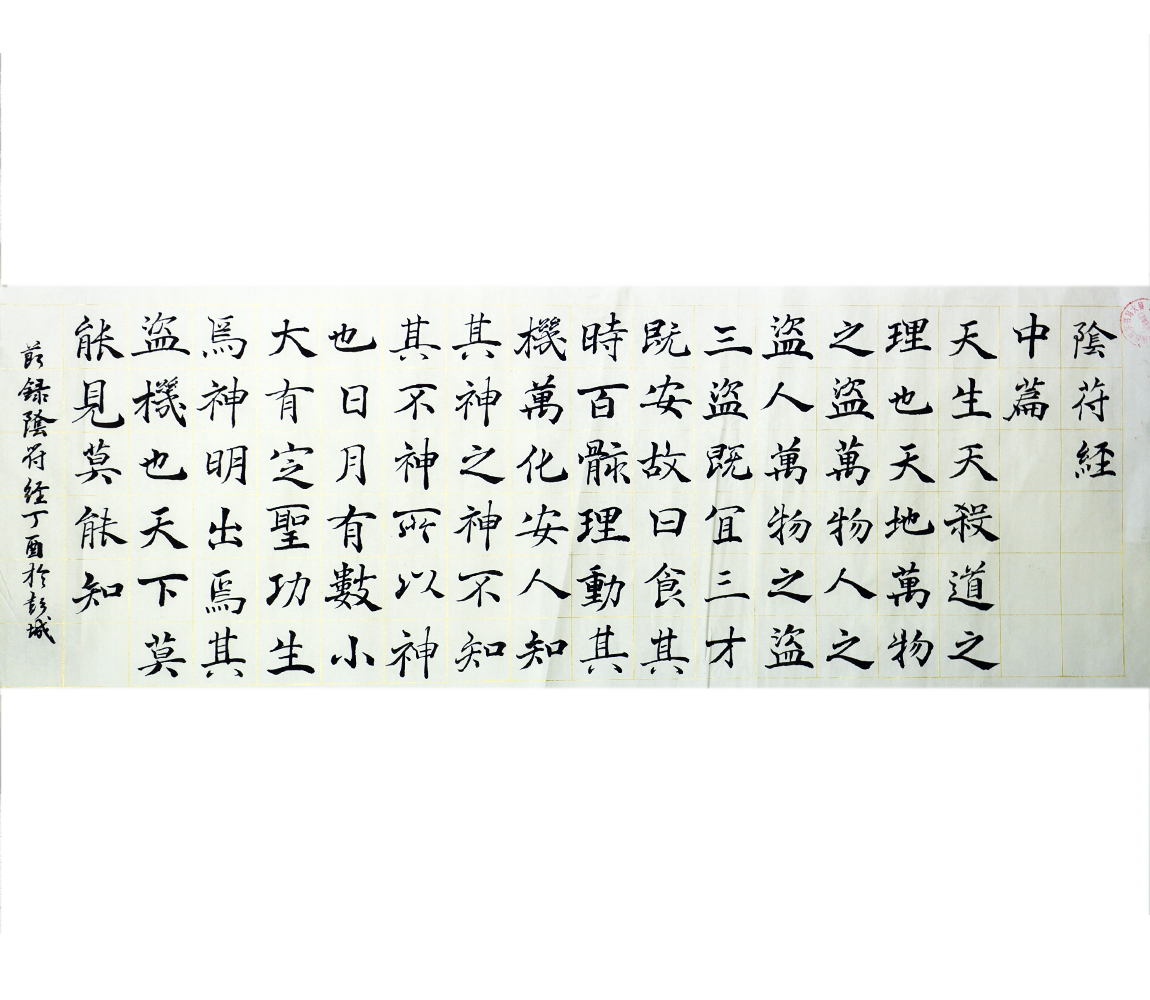 陰符経
中篇
天生天殺道之
理也天地萬物
之盜萬物人之
盜人萬物之盜
三盜既冝三才
既安故曰食其
時百骸理動其
機萬化安人知
其神之神不知
其不神所以神
也日月有數小
大有定聖功生
焉神明出焉其
盜機也天下莫
能見莫能知
節錄陰符経丁酉於彭城